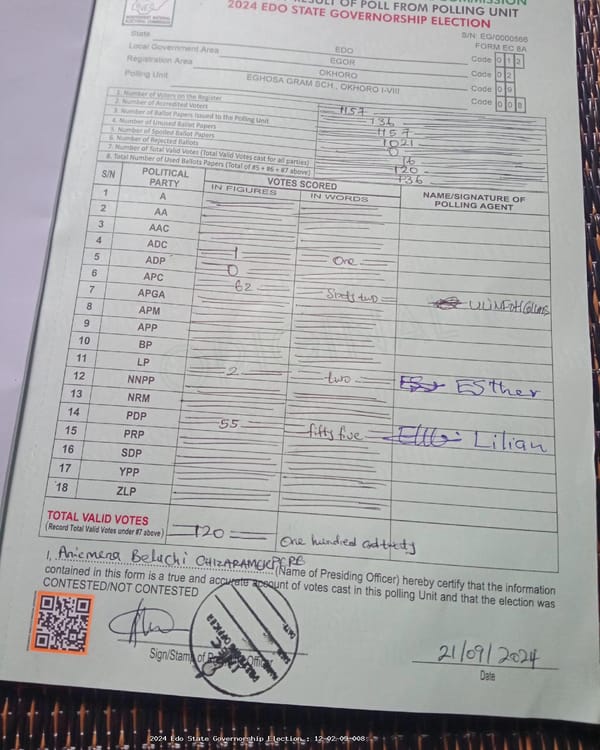 RESULT OF POLL FROM POLLING UNIT
2024 EDO STATE GOVERNORSHIP ELECTION
S/N: EG/0000566
FORM EC 8A
State EDO Code 012
Local Government Area EGOR Code 02
Registration Area OKHORO Code 09
Polling Unit EGHOSA GRAM SCH., OKHORO I-VIII Code 008
1. Number of Voters on the Register 1157
2. Number of Accredited Voters 136
3. Number of Ballot Papers Issued to the Polling Unit 1157
4. Number of Unused Ballot Papers 1021
5. Number of Spoiled Ballot Papers 0
6. Number of Rejected Ballots 16
7. Number of Total Valid Votes (Total Valid Votes cast for all parties) 120
8. Total Number of Used Ballots Papers (Total of #5 + #6 + #7 above) 136
S/N POLITICAL PARTY VOTES SCORED NAME/SIGNATURE OF POLLING AGENT
IN FIGURES IN WORDS
1 A
2 AA
3 AAC
4 ADC
5 ADP 1 One
6 APC 0
7 APGA 62 Sixty two
8 APM
9 APP
10 BP
11 LP
12 NNPP 2 two Esther
13 NRM
14 PDP
15 PRP 55 fifty five Lilian
16 SDP
17 YPP
18 ZLP
TOTAL VALID VOTES
(Record Total Valid Votes under #7 above) 120 One hundred and
I, (Name of Presiding Officer) hereby certify that the information
contained in this form is a true and accurate account of votes cast in this polling Unit and that the election was
CONTESTED/NOT CONTESTED
Sign/Stamp of Officer
21/09/2024
Date
2024 Edo State Governorship Election : 12-02-09-008